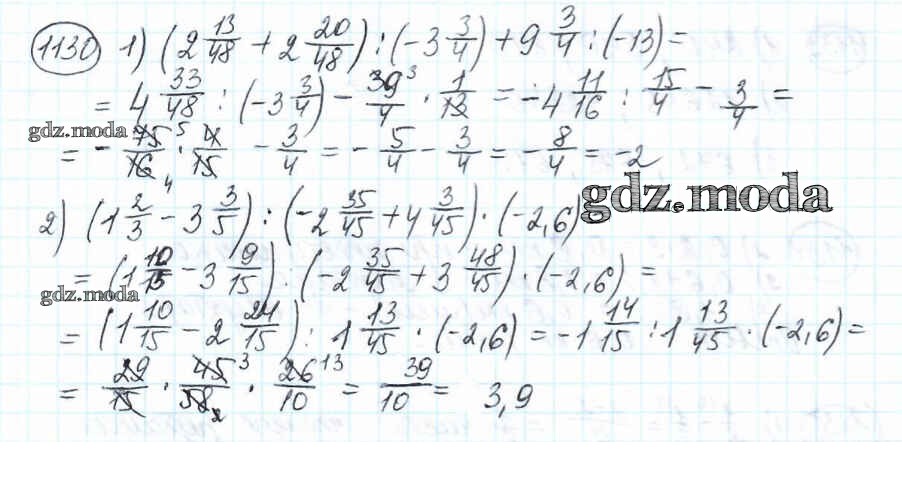 1130 1) (2 13/48 + 2 20/48) : (-3 3/4) + 9 3/4 : (-13) =
= 4 33/48 : (-3 3/4) - 39 3/4 · 1/13 = -4 11/16 : 15/4 - 3/4 =
gdz.moda
= - 75 5/16 4 · 4/15 - 3/4 = - 5/4 - 3/4 = - 8/4 = -2
gdz.moda
2) (1 2/3 - 3 3/5) : (-2 35/45 + 4 3/45) · (-2,6)
= (1 10/15 - 3 9/15) : (-2 35/45 + 3 48/45) · (-2,6) =
gdz.moda
= (1 10/15 - 2 24/15) : 1 13/45 · (-2,6) = -1 14/15 : 1 13/45 · (-2,6) =
= 29/15 · 45 3/58 2 · 26 13/10 = 39/10 = 3,9